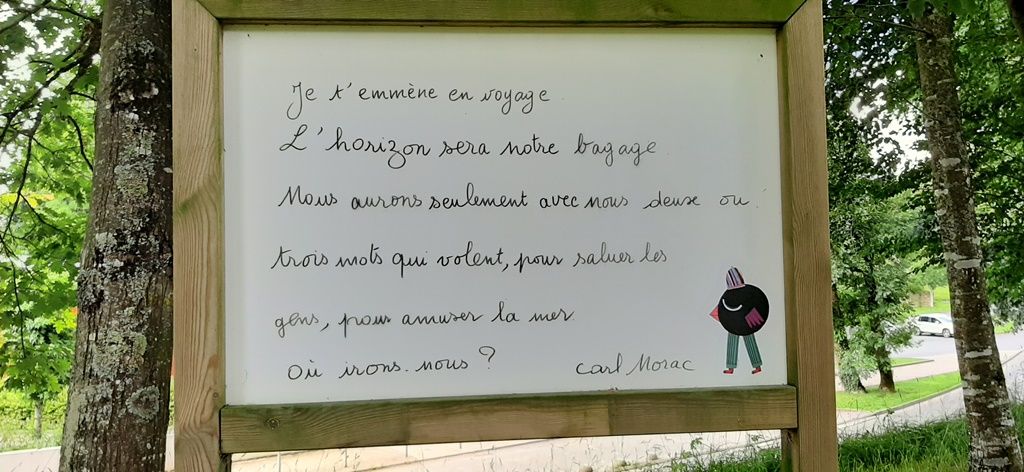 Je t'emmène en voyage.
L'horizon sera notre bagage
Nous aurons seulement avec nous deux ou
trois mots qui volent, pour saluer les
gens, pour amuser la mer
où irons-nous ?
Carl Norac